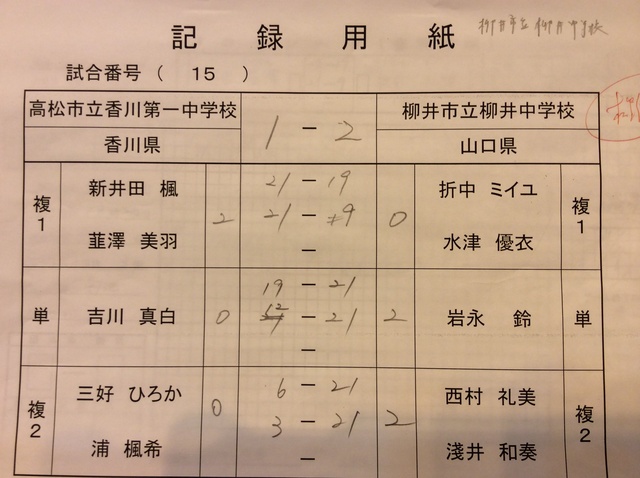 柳井市立柳井中学校
記録用紙
試合番号（ 15 ）
高松市立香川第一中学校 1 − 2 柳井市立柳井中学校
香川県 山口県
複1 新井田 楓 2 21 − 19 0 折中 ミイユ 複1
韮澤 美羽 21 − 9 水津 優衣
−
単 吉川 真白 0 19 − 21 2 岩永 鈴 単
12 − 21
−
複2 三好 ひろか 0 6 − 21 2 西村 礼美 複2
浦 楓希 3 − 21 淺井 和奏
−